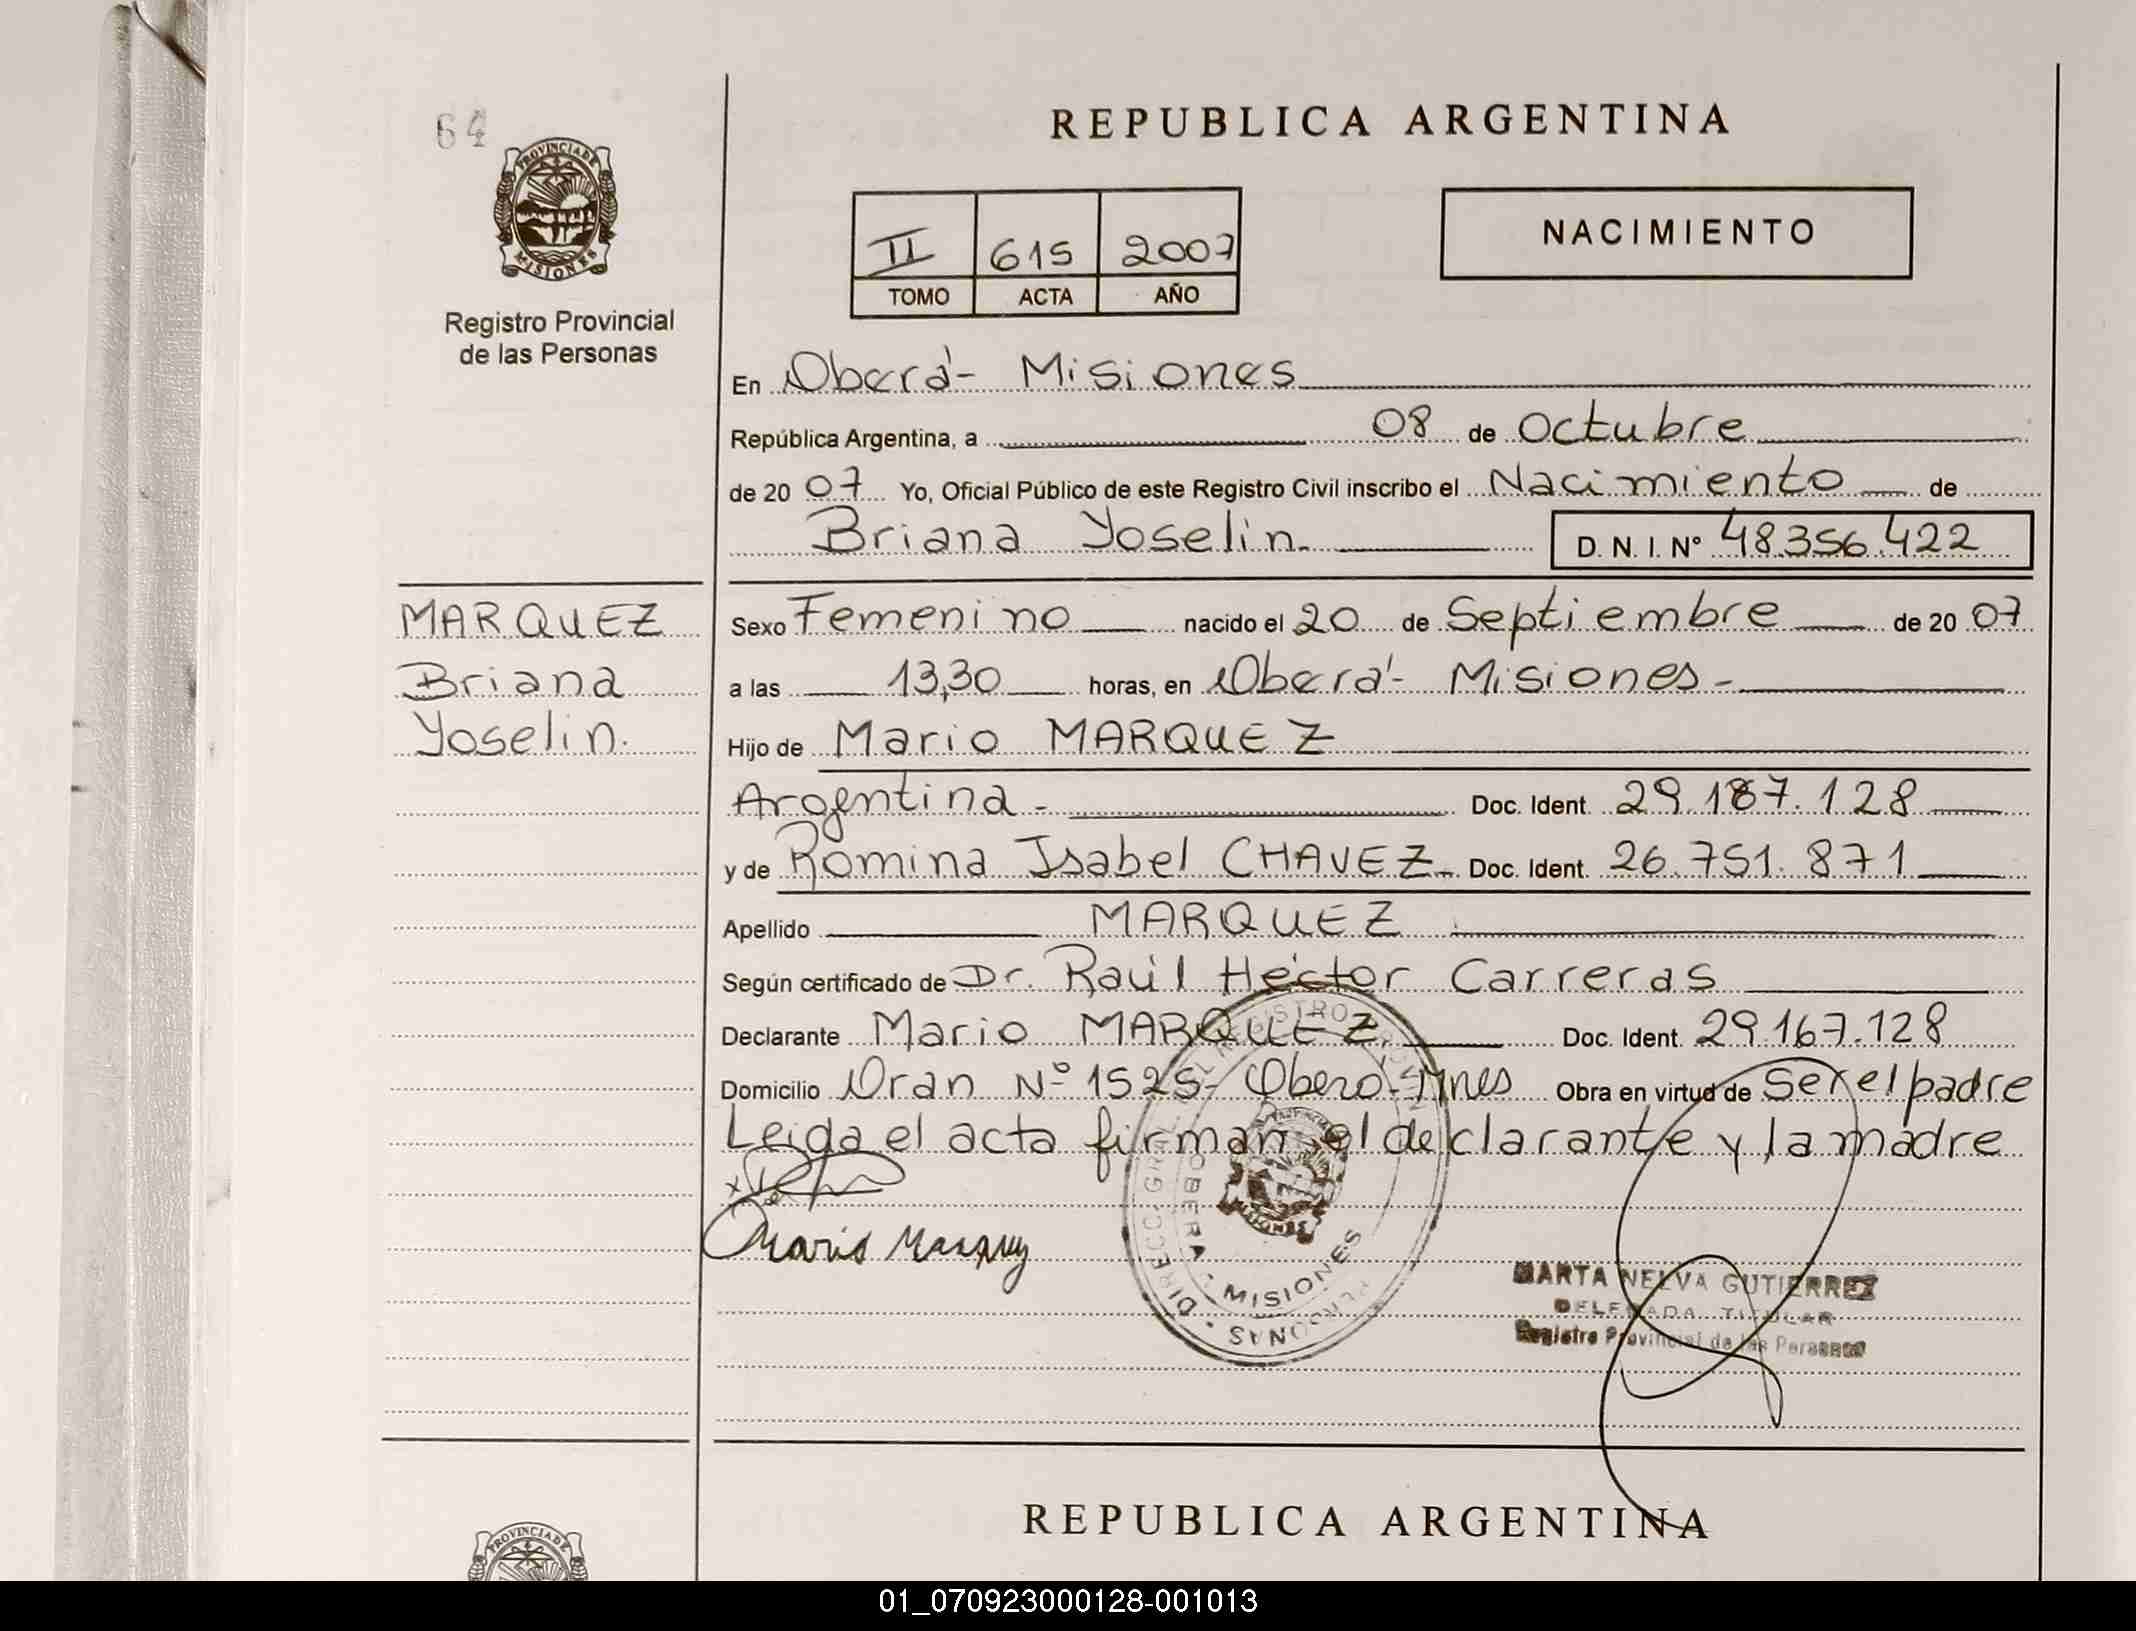 64
PROVINCIA DE
MISIONES
Registro Provincial
de las Personas
REPUBLICA ARGENTINA
II 615 2007
TOMO ACTA AÑO
NACIMIENTO
En Oberá - Misiones
República Argentina, a 08 de Octubre
de 20 07 Yo, Oficial Público de este Registro Civil inscribo el Nacimiento de
Briana Yoselin. D. N. I. Nº 48.356.422
MARQUEZ
Briana
Yoselin.
Sexo Femenino nacido el 20 de Septiembre de 20 07
a las 13,30 horas, en Oberá - Misiones -
Hijo de Mario MARQUEZ
Argentina - Doc. Ident. 29.167.128
y de Romina Isabel CHAVEZ - Doc. Ident. 26.751.871
Apellido MARQUEZ
Según certificado de Dr. Raúl Héctor Carreras
Declarante Mario MARQUEZ Doc. Ident. 29.167.128
Domicilio Oran Nº 1525 - Obera - Mnes Obra en virtud de ser el padre
Leida el acta firman el declarante y la madre
Mario Marquez
OBERA - MISIONES
MARTA NELVA GUTIERREZ
DELEGADA TITULAR
Registro Provincial de las Personas
REPUBLICA ARGENTINA
PROVINCIA DE
01_070923000128-001013